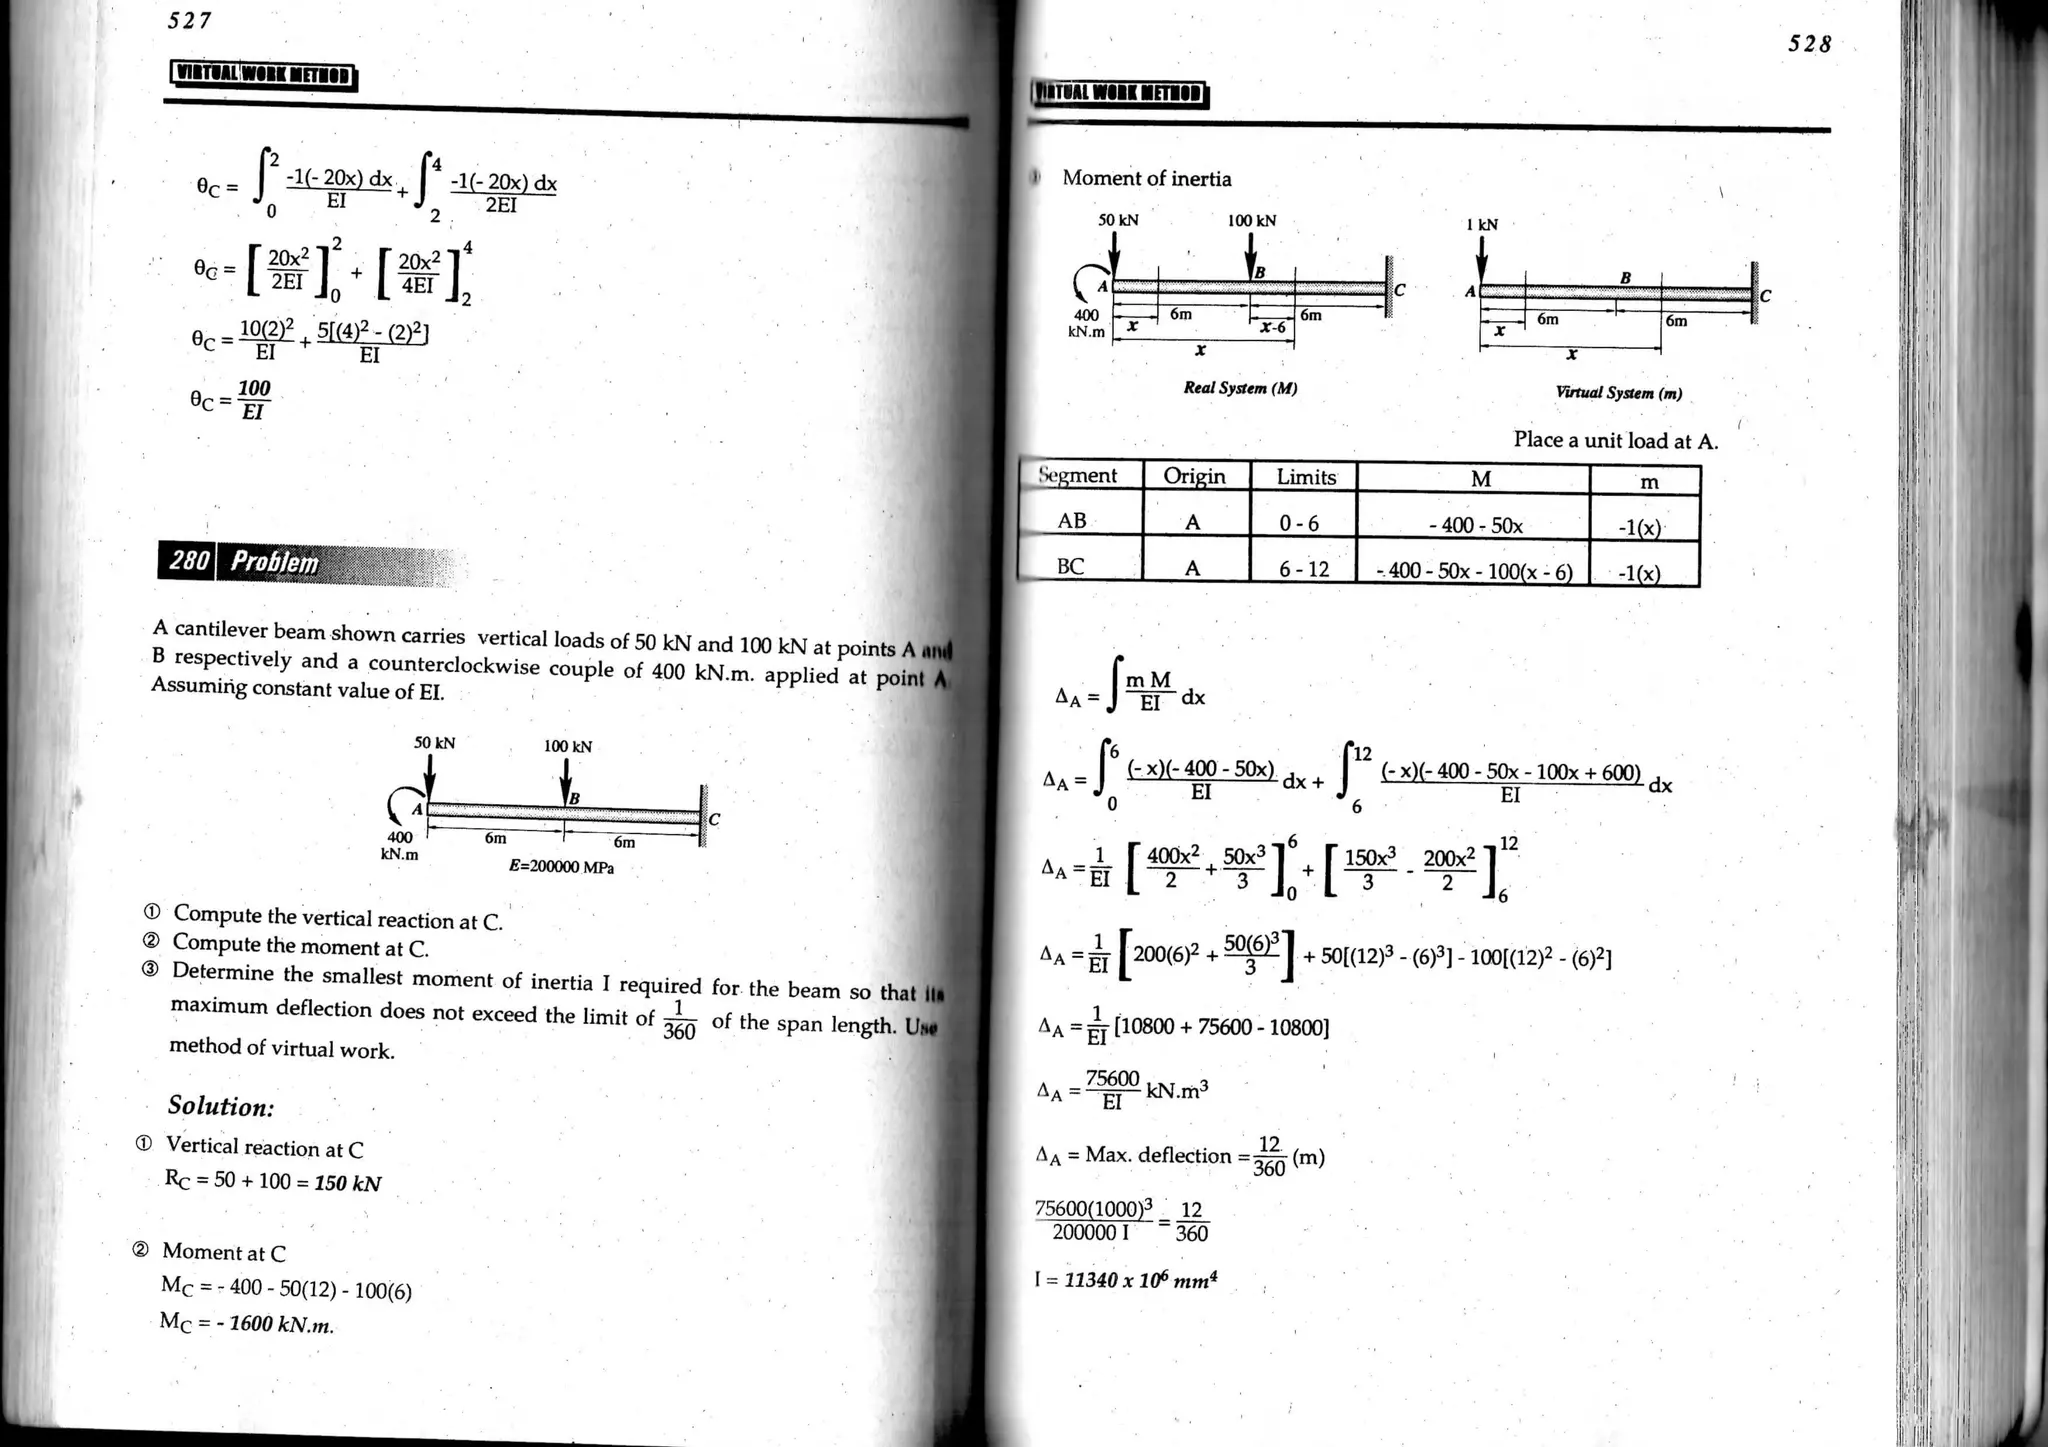 527
VIRTUAL WORK METHOD
θC = ∫₀² -1(- 20x) dx / EI + ∫₂⁴ -1(- 20x) dx / 2EI
θC = [ 20x² / 2EI ]₀² + [ 20x² / 4EI ]₂⁴
θC = 10(2)² / EI + 5[(4)² - (2)²] / EI
θC = 100 / EI
280 Problem
A cantilever beam shown carries vertical loads of 50 kN and 100 kN at points A and
B respectively and a counterclockwise couple of 400 kN.m. applied at point A
Assuming constant value of EI.
50 kN 100 kN
A B C
400 kN.m 6m 6m
E=200000 MPa
① Compute the vertical reaction at C.
② Compute the moment at C.
③ Determine the smallest moment of inertia I required for the beam so that its
maximum deflection does not exceed the limit of 1/360 of the span length. Use
method of virtual work.
Solution:
① Vertical reaction at C
RC = 50 + 100 = 150 kN
② Moment at C
MC = - 400 - 50(12) - 100(6)
MC = - 1600 kN.m.
528
VIRTUAL WORK METHOD
Moment of inertia
50 kN 100 kN
A B C
400 kN.m x 6m x-6 6m
x
Real System (M)
1 kN
A B C
x 6m 6m
x
Virtual System (m)
Place a unit load at A.
Segment Origin Limits M m
AB A 0 - 6 - 400 - 50x -1(x)
BC A 6 - 12 - 400 - 50x - 100(x - 6) -1(x)
ΔA = ∫ m M / EI dx
ΔA = ∫₀⁶ (- x)(- 400 - 50x) / EI dx + ∫₆¹² (- x)(- 400 - 50x - 100x + 600) / EI dx
ΔA = 1/EI [ 400x² / 2 + 50x³ / 3 ]₀⁶ + [ 150x³ / 3 - 200x² / 2 ]₆¹²
ΔA = 1/EI [ 200(6)² + 50(6)³ / 3 ] + 50[(12)³ - (6)³] - 100[(12)² - (6)²]
ΔA = 1/EI [10800 + 75600 - 10800]
ΔA = 75600 / EI kN.m³
ΔA = Max. deflection = 12/360 (m)
75600(1000)³ / 200000 I = 12 / 360
I = 11340 x 10⁶ mm⁴